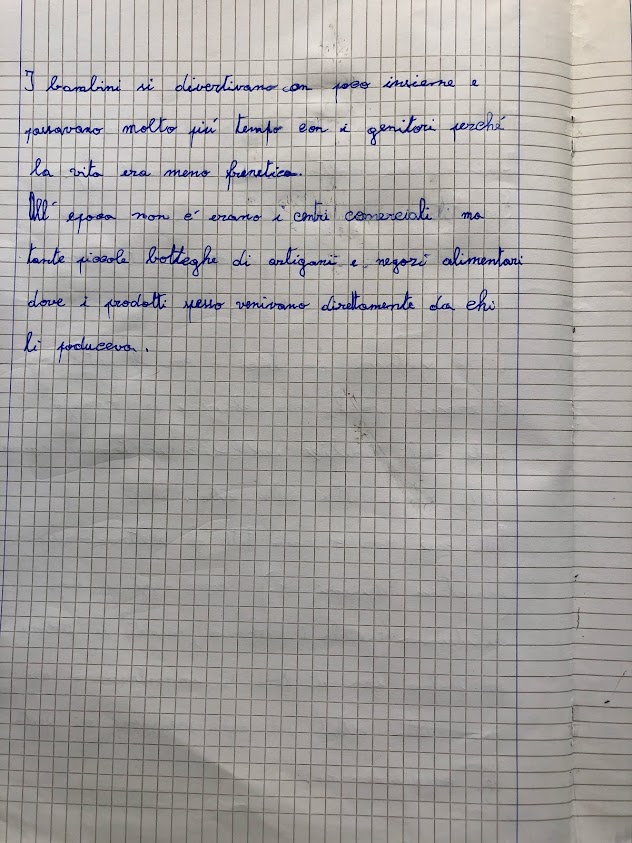 I bambini si divertivano con poco insieme e
passavano molto piú tempo con i genitori perché
la vita era meno frenetica.
All' epoca non é erano i centri comerciali ma
tante piccole botteghe di artigani e negozi alimentari
dove i prodotti spesso venivano direttamente da chi
li poduceva.